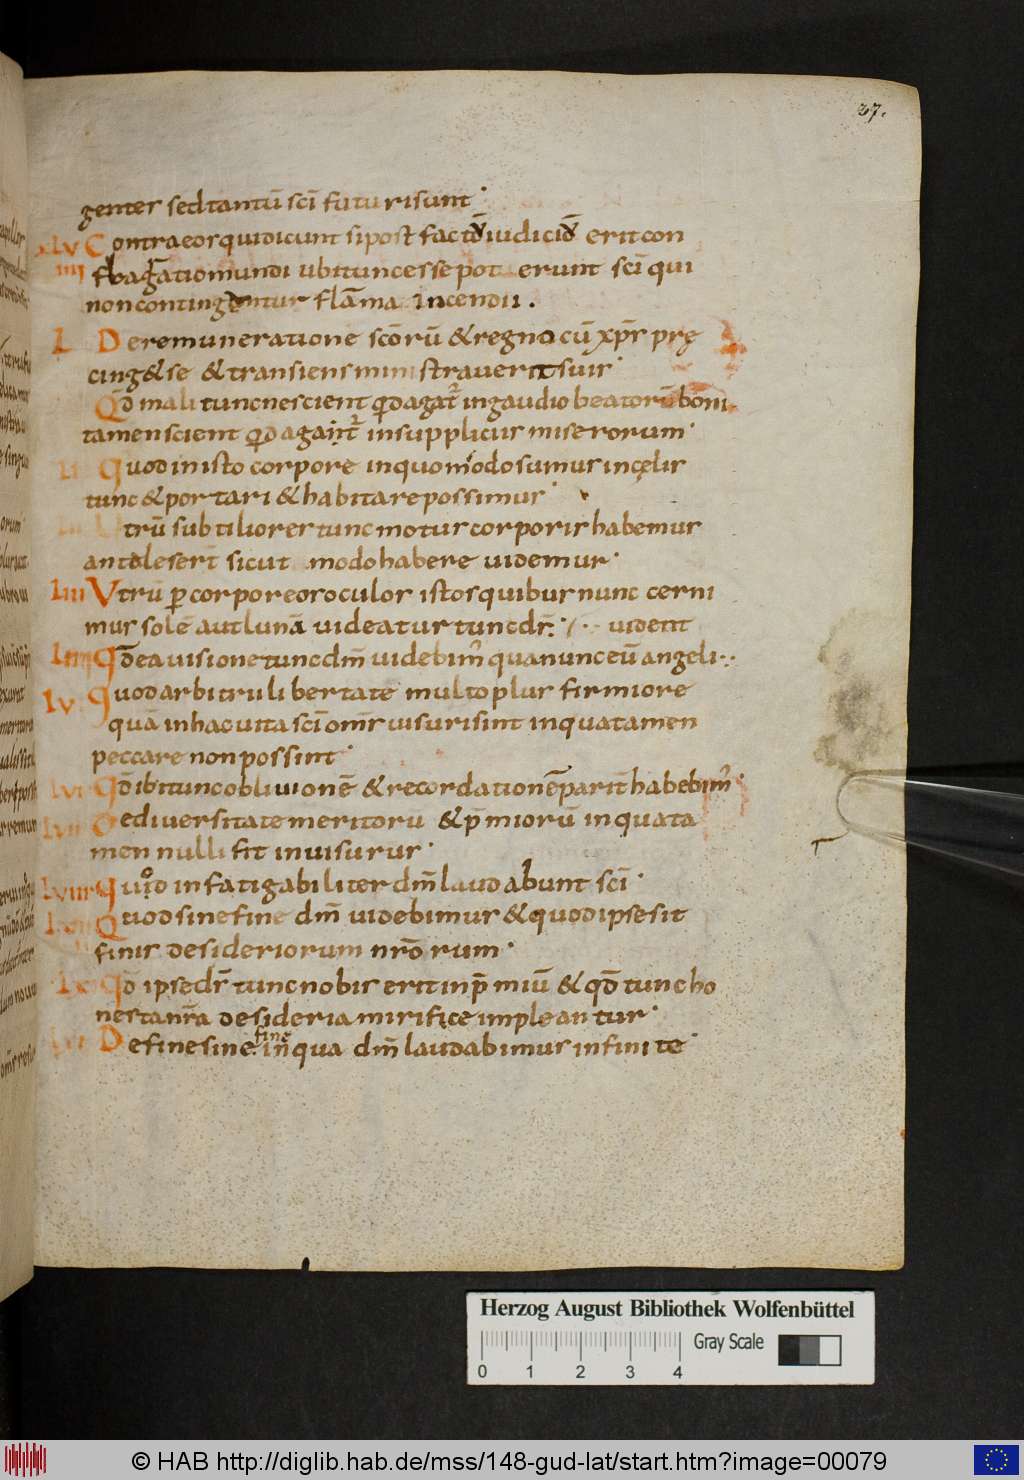 37.
genter sed tantū sc̄i futuri sunt
xlv Contra eos qui dicunt si post factū iudiciū erit con
iiii flagratio mundi ubi tunc esse poterunt sc̄i qui
non contingentur flāma incendii.
L De remuneratione sc̄orū & regno cū xp̄s prę
cing& se & transiens ministraverit suis
Qd̄ mali tunc nescient qd̄ agat̄ in gaudio beatorū boni
tamen scient qd̄ agat̄ in suppliciis miserorum
li Quod in isto corpore in quo modo sumus in cęlis
tunc & portari & habitare possimus
Utrū subtiliores tunc motus corporis habemus
modo habere videmur
Liii Vtrū p corporeos oculos istos quibus nunc cerni
mus solē aut lunā videatur tunc ds̄ videntt
Liiii Qd̄ ea visione tunc dm̄ videbim' qua nunc eū angeli
Lv Quod arbitrii libertate multo plus firmiore
quā in hac vita sc̄i om̄s visuri sint in qua tamen
peccare non possint
lvi Qd̄ ibi tunc oblivionē & recordationē parit̄ habebim'
lvii De diversitate meritorū & p̄miorū in qua ta
men nulli fit invisurus
Lviii Quod infatigabiliter dm̄ laudabunt sc̄i
Quod sine fine dm̄ videbimus & quod ipse sit
finis desideriorum nr̄orum
Lx Qd̄ ipse ds̄ tunc nobis erit in p̄miū & qd̄ tunc ho
nesta nr̄a desideria mirifice impleantur
De fine sine fine in qua dm̄ laudabimus infinite
Herzog August Bibliothek Wolfenbüttel
Gray Scale
0 1 2 3 4
© HAB http://diglib.hab.de/mss/148-gud-lat/start.htm?image=00079